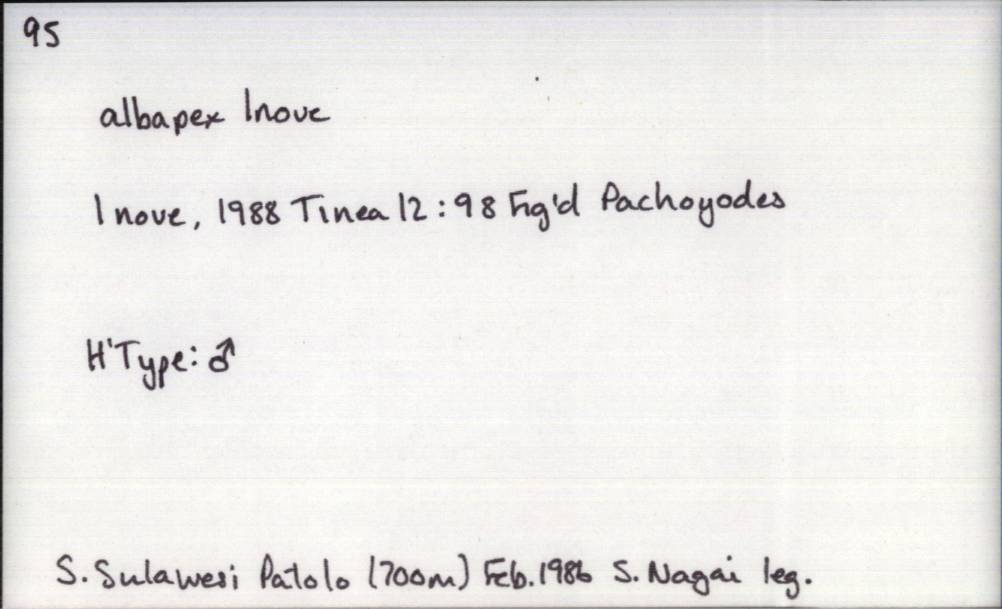 95
albapex Inoue
Inoue, 1988 Tinea 12:98 Fig'd Pachoyodes
H'Type: ♂
S. Sulawesi Patolo (700m) Feb. 1986 S. Nagai leg.